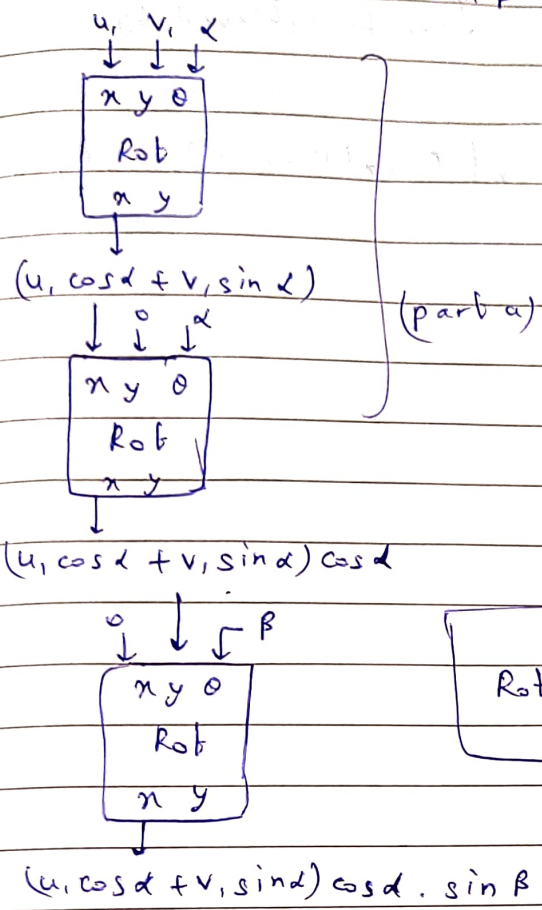 u₁ v₁ α
x y θ
Rot
x y
(u₁ cosα + v₁ sin α)
0 α
(part a)
x y θ
Rot
x y
(u₁ cos α + v₁ sin α) cos α
0 β
x y θ
Rot
Rot
x y
(u₁ cos α + v₁ sin α) cos α . sin β